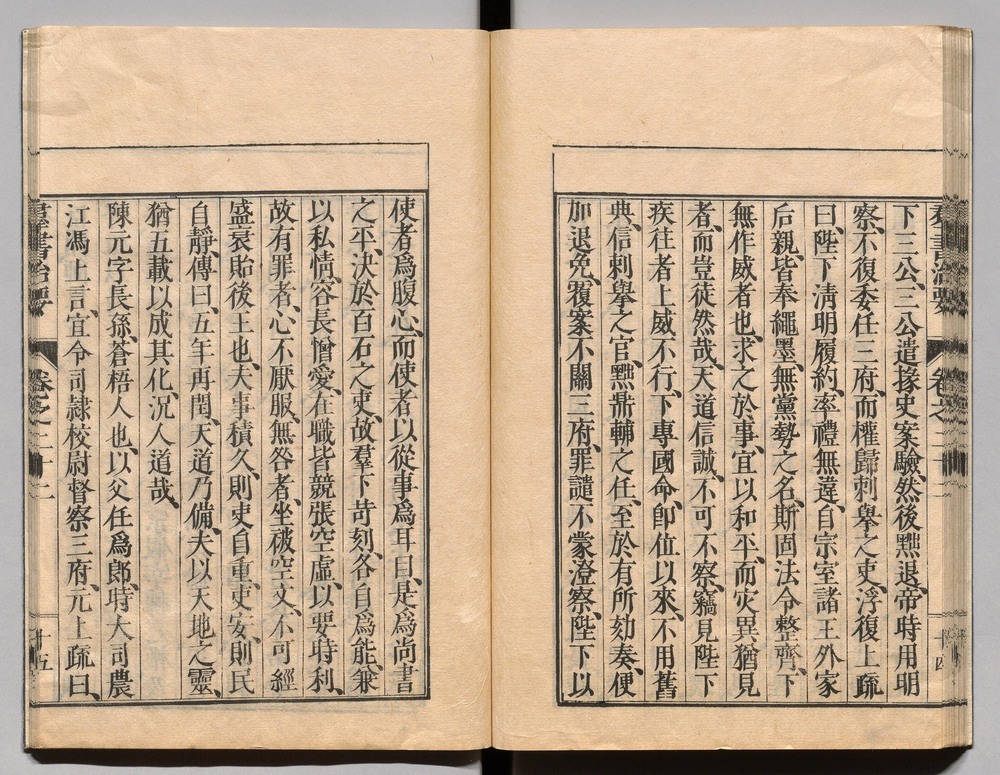 下三公、三公遣掾史案驗、然後黜退、帝時用明
察、不復委任三府、而權歸刺舉之吏、浮復上疏
曰、陛下淸明履約、率禮無違、自宗室諸王外家
后親、皆奉繩墨、無黨勢之名、斯固法令整齊、下
無作威者也、求之於事、宜以和平、而灾異猶見
者、而豈徒然哉、天道信誠、不可不察、竊見陛下
疾往者上威不行、下專國命、卽位以來、不用舊
典、信刺舉之官、黜鼎輔之任、至於有所劾奏、便
加退免、覆案不關三府、罪譴不蒙澄察、陛下以
使者爲腹心、而使者以從事爲耳目、是爲尚書
之平、決於百石之吏、故羣下苛刻、各自爲能、兼
以私情、容長憎愛、在職皆競張空虛、以要時利、
故有罪者、心不厭服、無咎者、坐被空文、不可經
盛衰貽後王也、夫事積久、則吏自重、吏安、則民
自靜、傳曰、五年再閏、天道乃備、夫以天地之靈、
猶五載以成其化、況人道哉、
陳元字長孫、蒼梧人也、以父任爲郎、時大司農
江馮上言、宜令司隷校尉督察三府、元上疏曰、
羣書治要 卷之二十二 十五